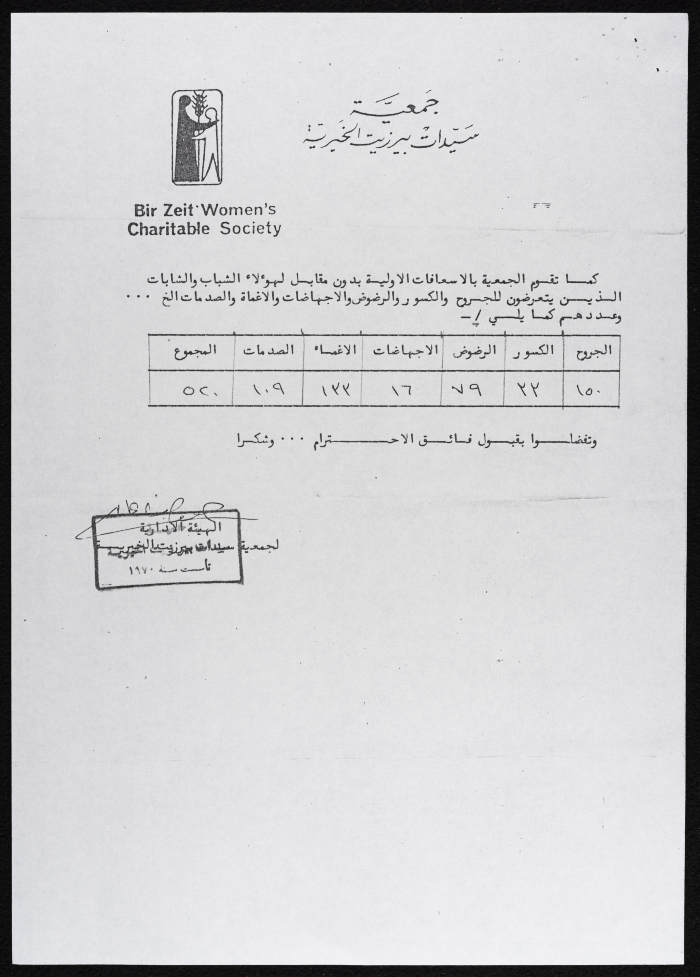 جمعية
سيدات بيرزيت الخيرية
Bir Zeit Women's
Charitable Society
كما تقوم الجمعية بالاسعافات الاولية بدون مقابل لهؤلاء الشباب والشابات
الذين يتعرضون للجروح والكسور والرضوض والاجهاضات والاغماة والصدمات الخ ...
وعددهم كما يلي /_
الجروح الكسور الرضوض الاجهاضات الاغماء الصدمات المجموع
١٥٠ ٣٣ ٧٩ ١٦ ١٣٣ ١٠٩ ٥٢٠
وتفضلوا بقبول فائق الاحترام ... وشكرا
الهيئة الادارية
لجمعية سيدات بيرزيت الخيرية
تأسست سنة ١٩٧٠